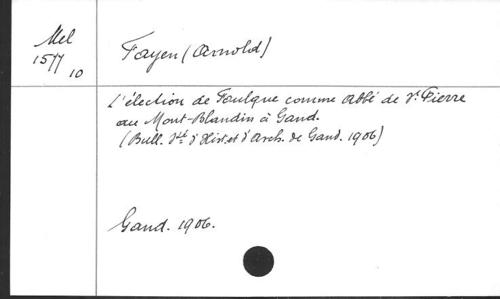 Mel
1577
10
Fayen (Arnold)
L'élection de Foulque comme abbé de St. Pierre
au Mont-Blandin à Gand.
(Bull. Sté d'Hist. et d'Arch. de Gand. 1906)
Gand. 1906.